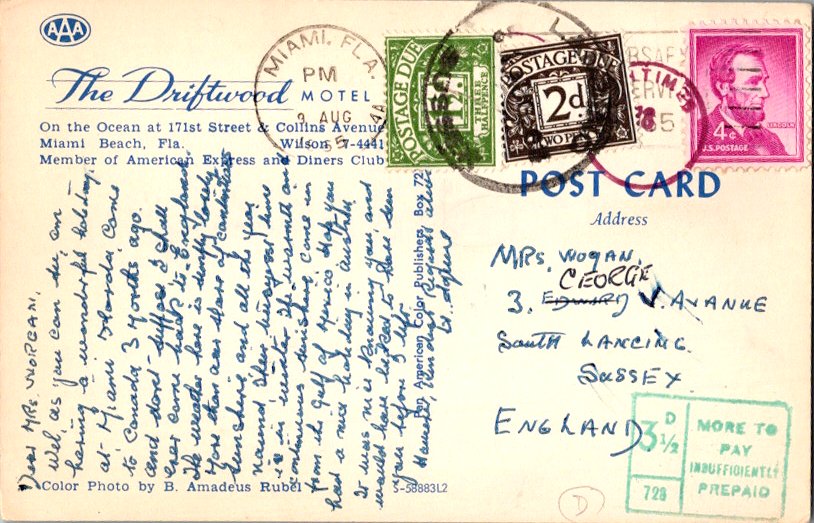 AAA
The Driftwood MOTEL
On the Ocean at 171st Street & Collins Avenue
Miami Beach, Fla. Wilson 7-4441
Member of American Express and Diners Club
MIAMI, FLA.
PM
9 AUG
1965
POSTAGE DUE
POSTAGE DUE
2d.
TWO PENCE
LINCOLN
4¢
U.S. POSTAGE
POST CARD
Address
MRS. WOGAN.
GEORGE
3. EDWARD V. AVANUE
SOUTH LANCING
SUSSEX
ENGLAND.
3 D 1/2
728
MORE TO
PAY
INSUFFICIENTLY
PREPAID
D
Dear MRS. WORGAN.
Well, as you can see, am
having a wonderful holiday
at Miami Florida, Came
to Canada 3 Months ago.
and dont suppose I shall
ever come back to England
The weather here is simply lovely
More than nine hours of
Sunshine and all the year
round. Their
is in winter. The warmth and
continuous sunshine, come in
from the Gulf of Mexico. Hope you
had a nice holiday in Austria,
It was nice knowing you, and
would have liked to have seen
you before I left.
Pan American Color Publishers, Box 72
Color Photo by B. Amadeus Rubel
S-58883L2